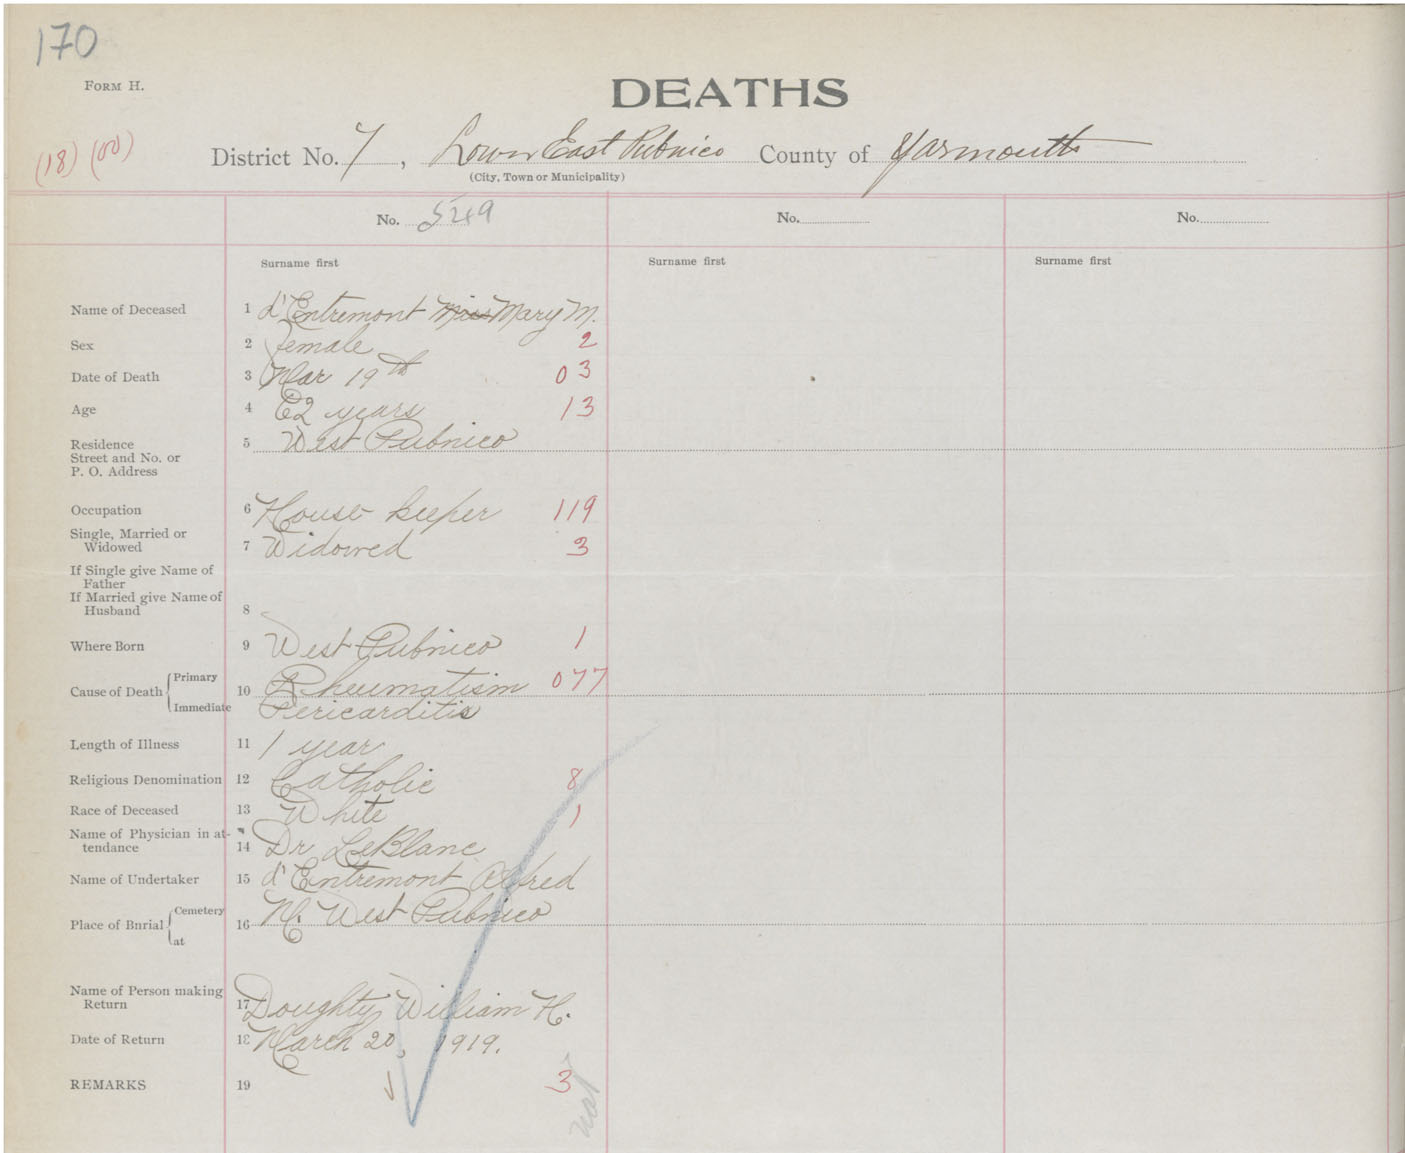 170
FORM H.
DEATHS
(18) (00)
District No. 7, Lower East Pubnico County of Yarmouth
(City, Town or Municipality)
No. 549 No. No.
Surname first Surname first Surname first
Name of Deceased 1 d'Entremont Miss Mary M.
Sex 2 female 2
Date of Death 3 Mar 19th 03
Age 4 62 years 13
Residence 5 West Pubnico
Street and No. or
P. O. Address
Occupation 6 House keeper 119
Single, Married or
Widowed 7 Widowed 3
If Single give Name of
Father
If Married give Name of
Husband 8
Where Born 9 West Pubnico 1
Cause of Death { Primary 10 Rheumatism 077
Immediate Pericarditis
Length of Illness 11 1 year
Religious Denomination 12 Catholic 8
Race of Deceased 13 White 1
Name of Physician in at-
tendance 14 Dr LeBlanc
Name of Undertaker 15 d'Entremont Alfred
Place of Bnrial { Cemetery 16 M. West Pubnico
at
Name of Person making
Return 17 Doughty William H.
Date of Return 18 March 20, 1919.
REMARKS 19 3